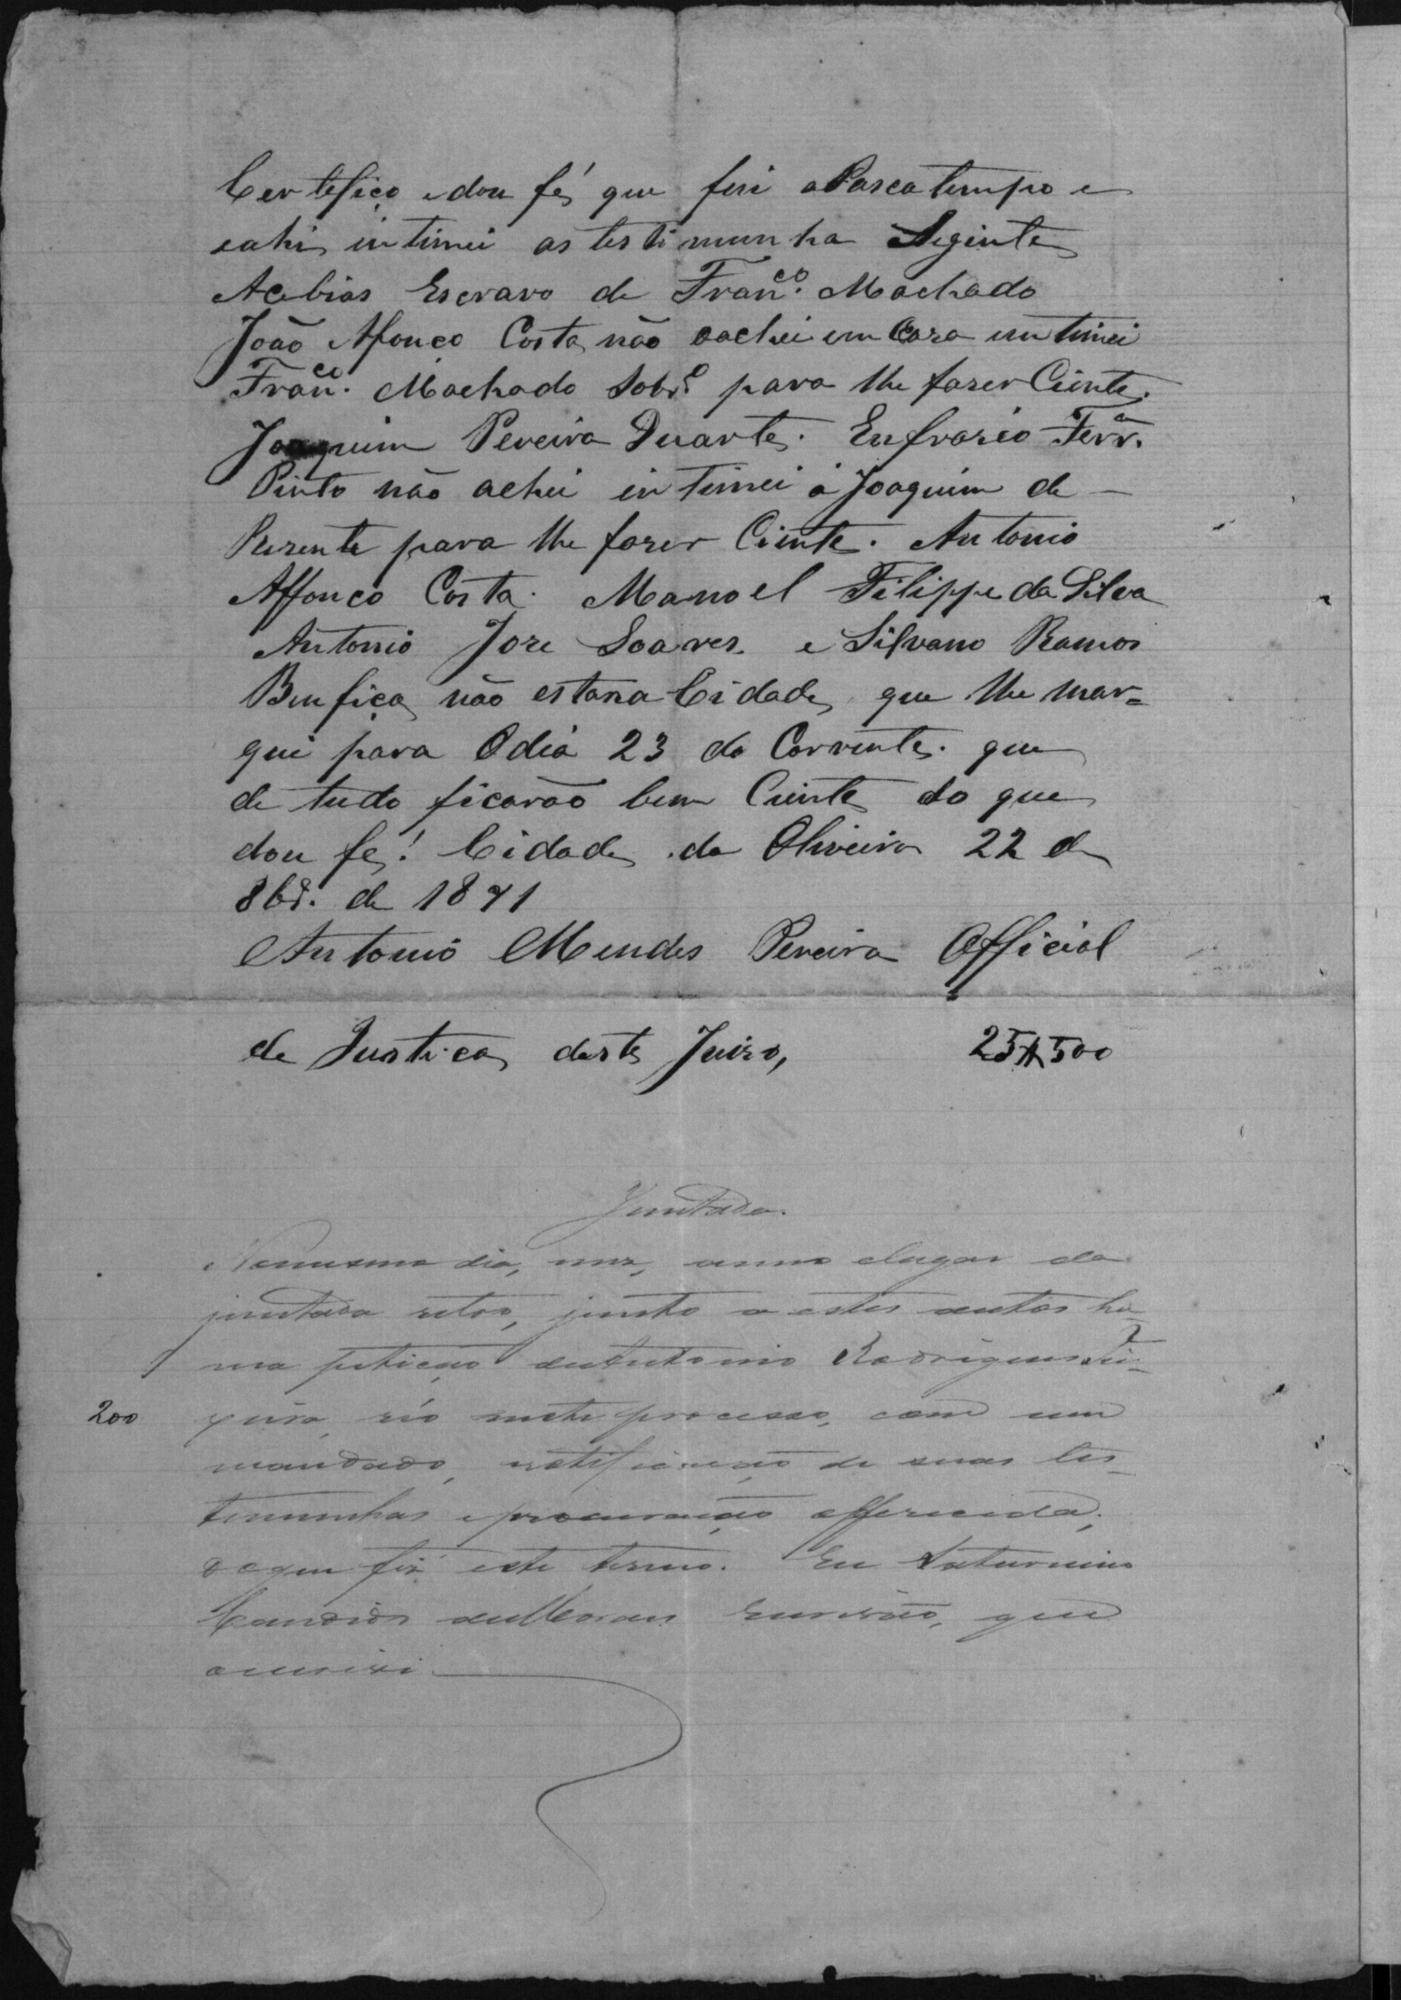 Certefiço e dou fé, que fui a Pascatempo e
eahi, intimei as testimunha Seginte
Acebias Escravo de Fran.co Machado
João Afonço Costa, não oachei em Casa intimei
Fran.co Machado Sobr.o para lhe faser Ciente.
Joaquim Pereira Duarte. Eufrasio Ferr.a
Pinto não achei intimei á Joaquim de —
Resente para lhe faser Ciente. Antonio
Affonco Costa. Manoel Filippe da Silva
Antonio Jose Soares. e Silvano Ramos
Benfica, não estava Cidade, que lhe mar=
quei para Odia 23 do Corrente. que
de tudo ficarão bem Ciente do que
dou fé! Cidade da Oliveira 22 de
8br. de 1871
Antonio Mendes Pereira Official
de Justica, deste Juiso, 25$500
Juntada.
Nomesmo dia, mez, anno elugar da
juntada retro, junto a estes autos hu-
ma petição de Antonio Rodrigues Tei-
200 xeira, réo neste processo, com um
mandado, notificação de suas tes-
temunhas e procuração offerecida;
do que fiz este termo. Eu Saturnino
Candido de Moraes Escrivão, que
o escrivi